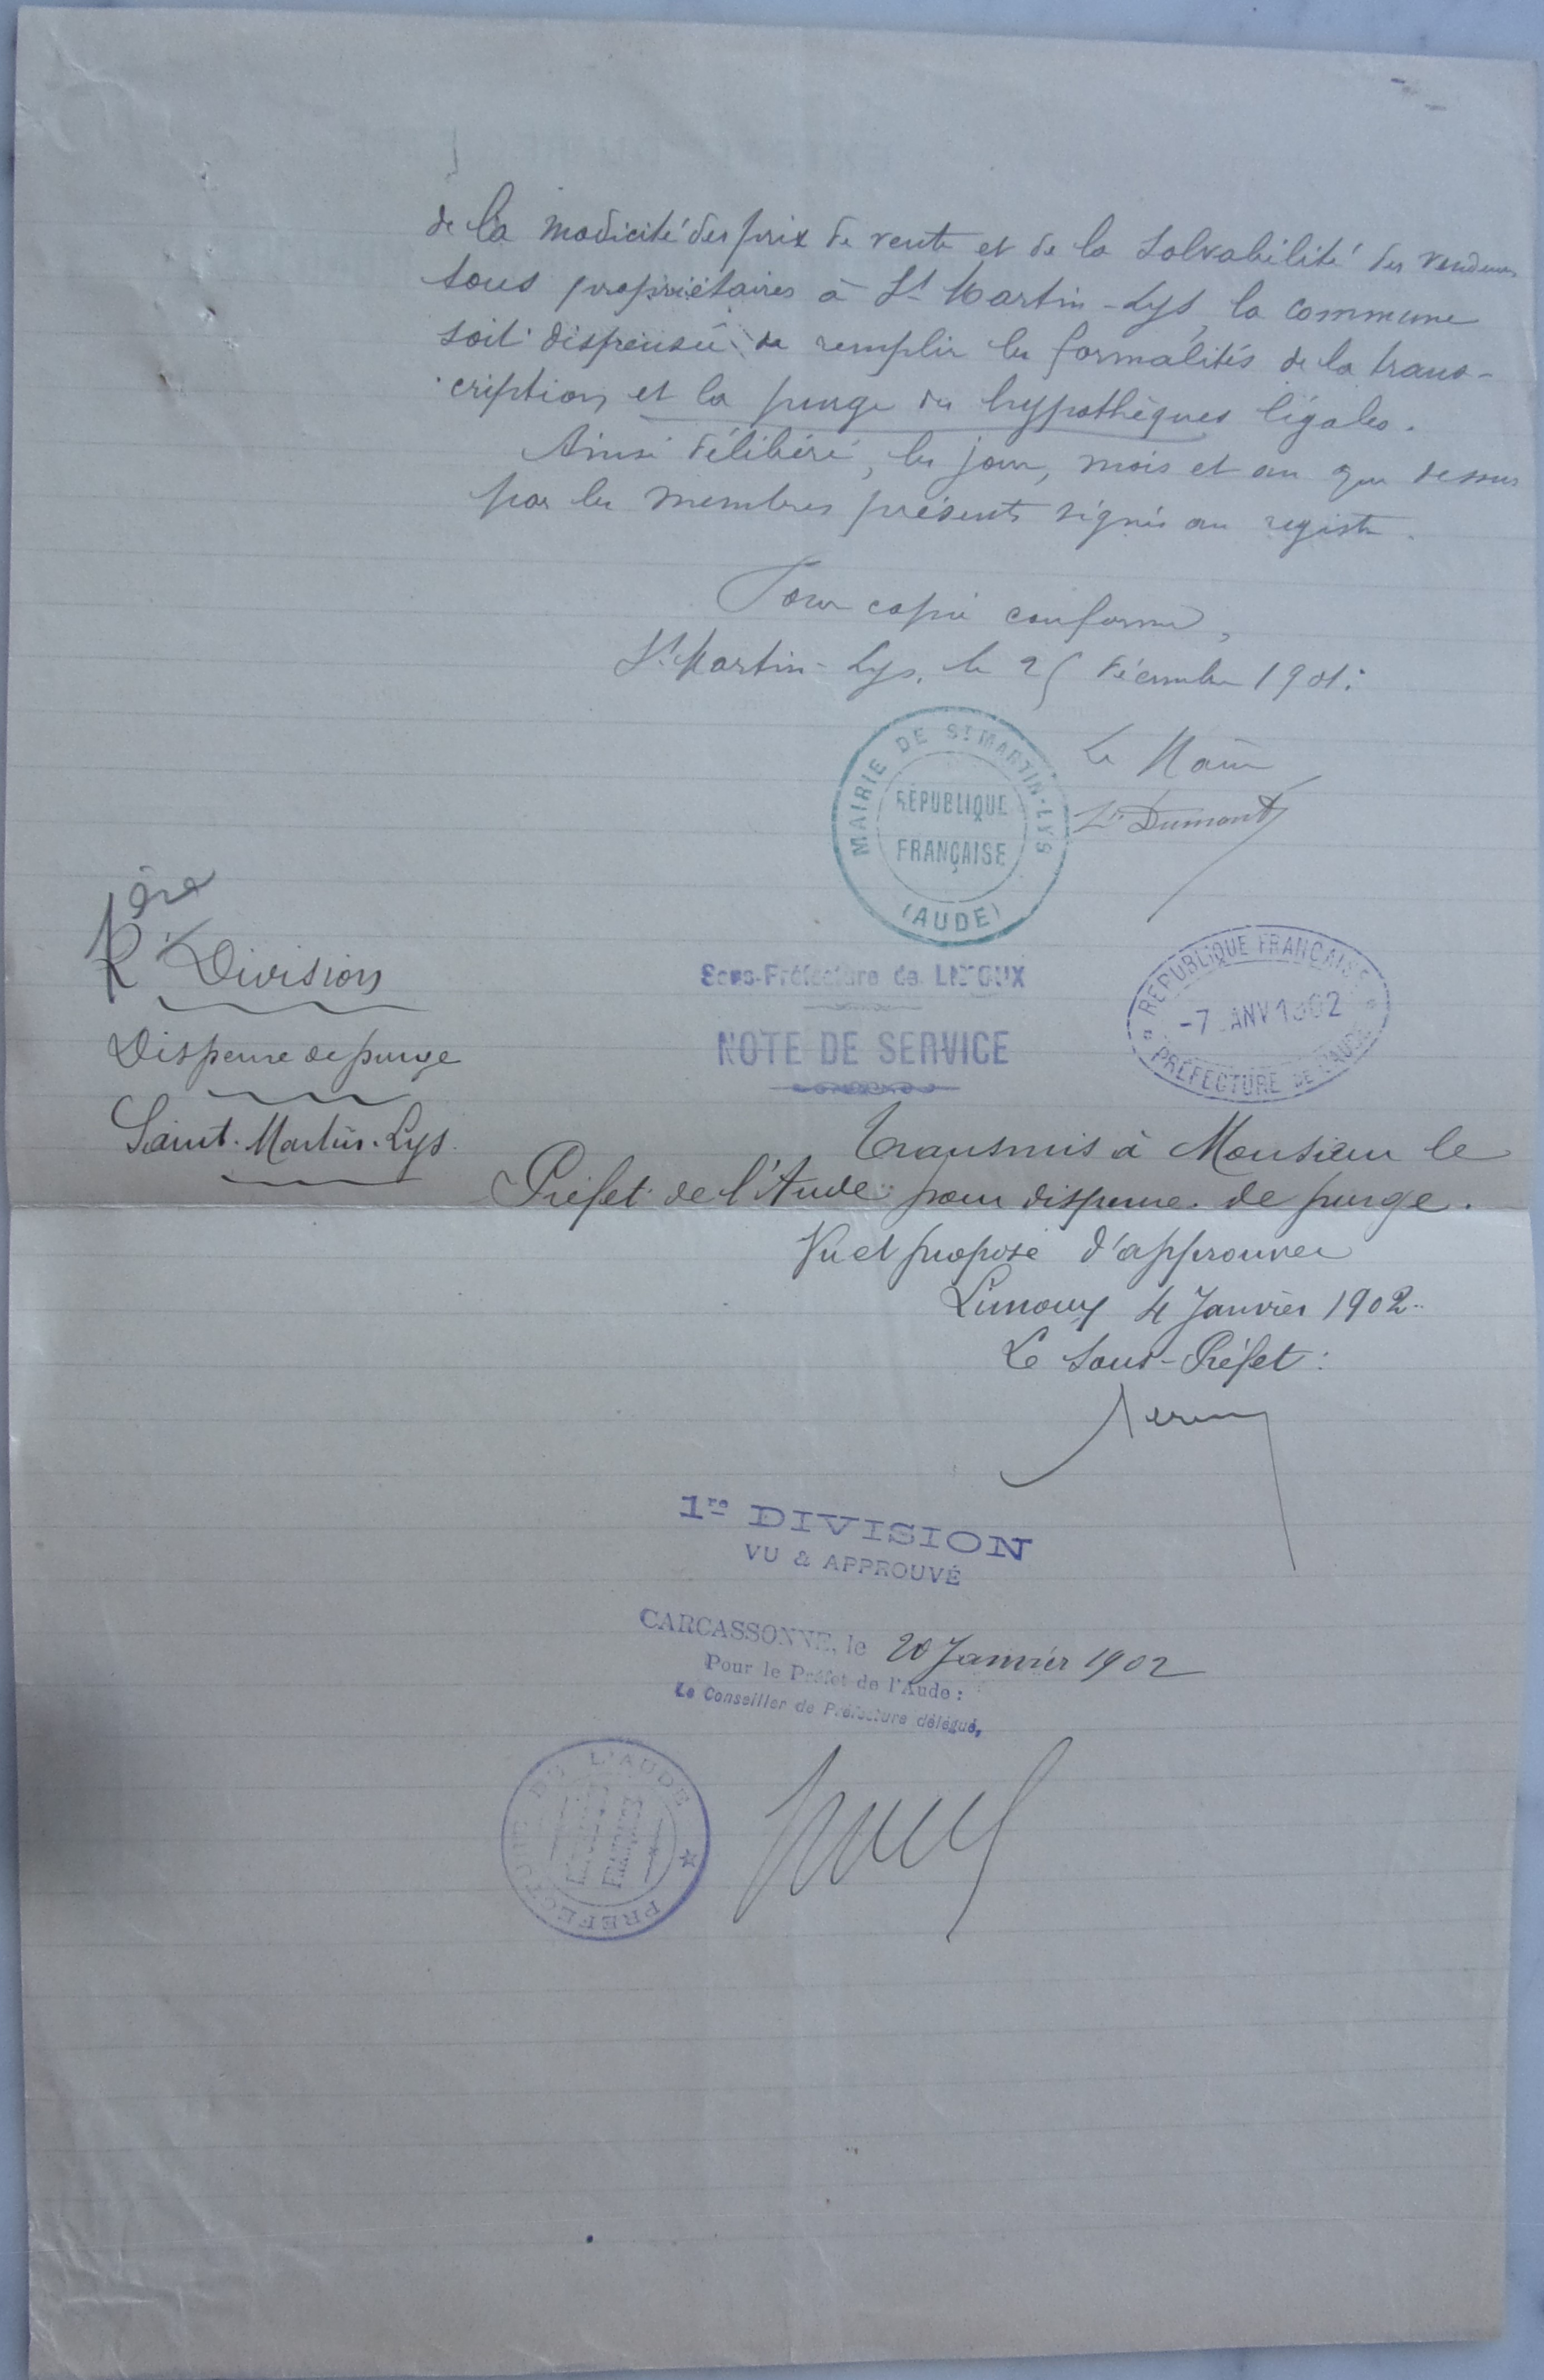 de la modicité des prix de vente et de la solvabilité des vendeurs
tous propriétaires à St Martin-Lys, la commune
soit dispensée de remplir les formalités de la trans-
cription et la purge des hypothèques légales.
Ainsi délibéré, les jour, mois et an que dessus
par les membres présents signés au registre.
Pour copie conforme,
St Martin-Lys, le 25 décembre 1901.
MAIRIE DE ST MARTIN-LYS
RÉPUBLIQUE
FRANÇAISE
(AUDE)
Le Maire
Dumont
1ère
Division
Dispense de purge
Saint-Martin-Lys.
Sous-Préfecture de LIMOUX
NOTE DE SERVICE
RÉPUBLIQUE FRANÇAISE
-7 JANV 1902
PRÉFECTURE DE L'AUDE
Transmis à Monsieur le
Préfet de l'Aude pour dispense de purge.
Vu et proposé d'approuver
Limoux 4 Janvier 1902
Le Sous-Préfet:
1re DIVISION
VU & APPROUVÉ
CARCASSONNE, le 20 Janvier 1902
Pour le Préfet de l'Aude:
Le Conseiller de Préfecture délégué,
PREFECTURE DE L'AUDE